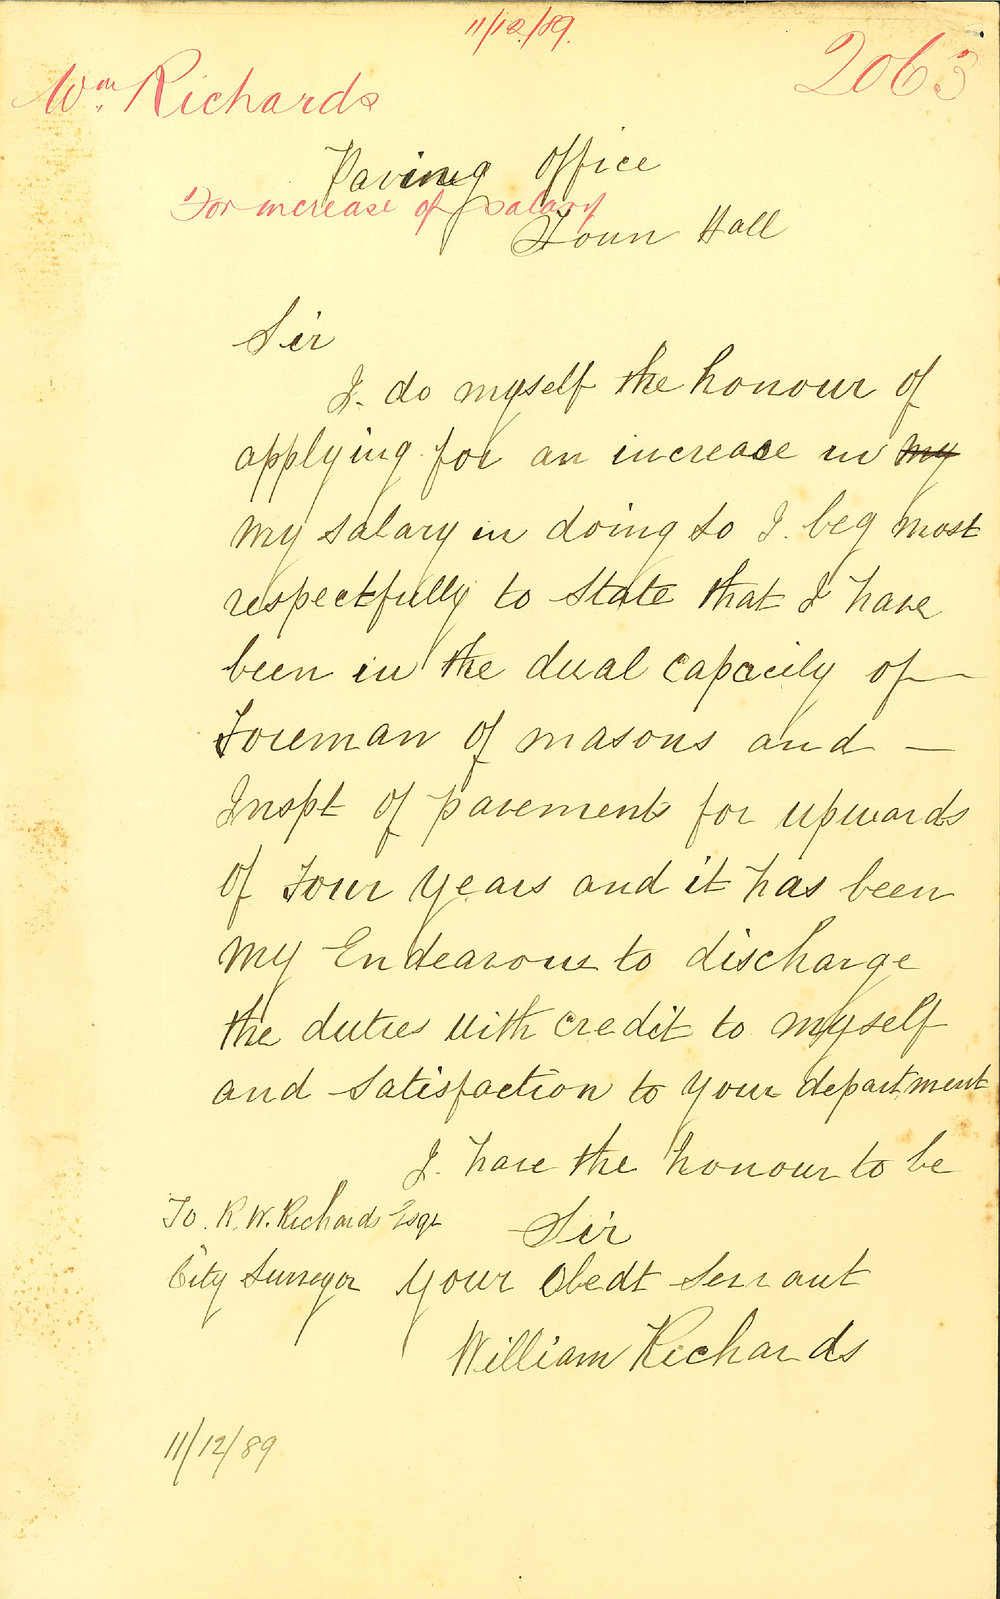 11/12/89.
2063
Wm. Richards
Paving Office
For increase of salary
Town Hall
Sir
I. do myself the honour of
applying for an increase in my
my salary in doing so I. beg most
respectfully to state that I have
been in the dual capacity of
Foreman of masons and
Inspt of pavements for upwards
of Four years and it has been
my Endeavour to discharge
the duties with credit to myself
and satisfaction to your department
I. have the honour to be
To. R. W. Richards Esqr Sir
City Surveyor your Obedt servant
William Richards
11/12/89